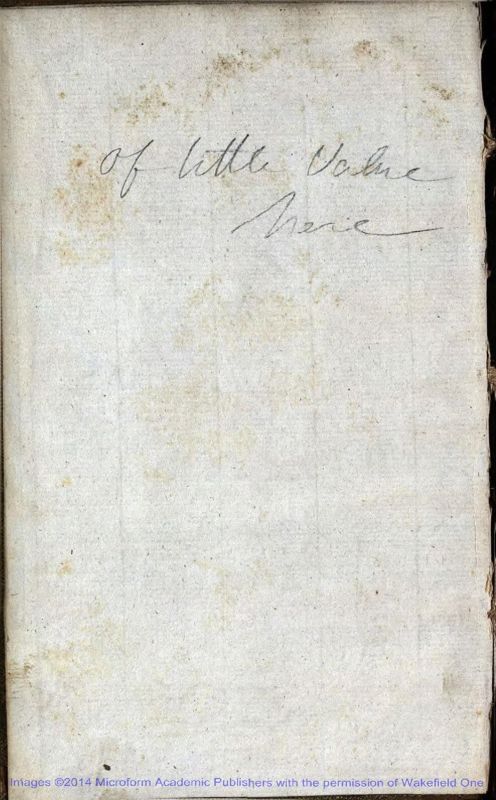 of little Value
here
Images ©2014 Microform Academic Publishers with the permission of Wakefield One